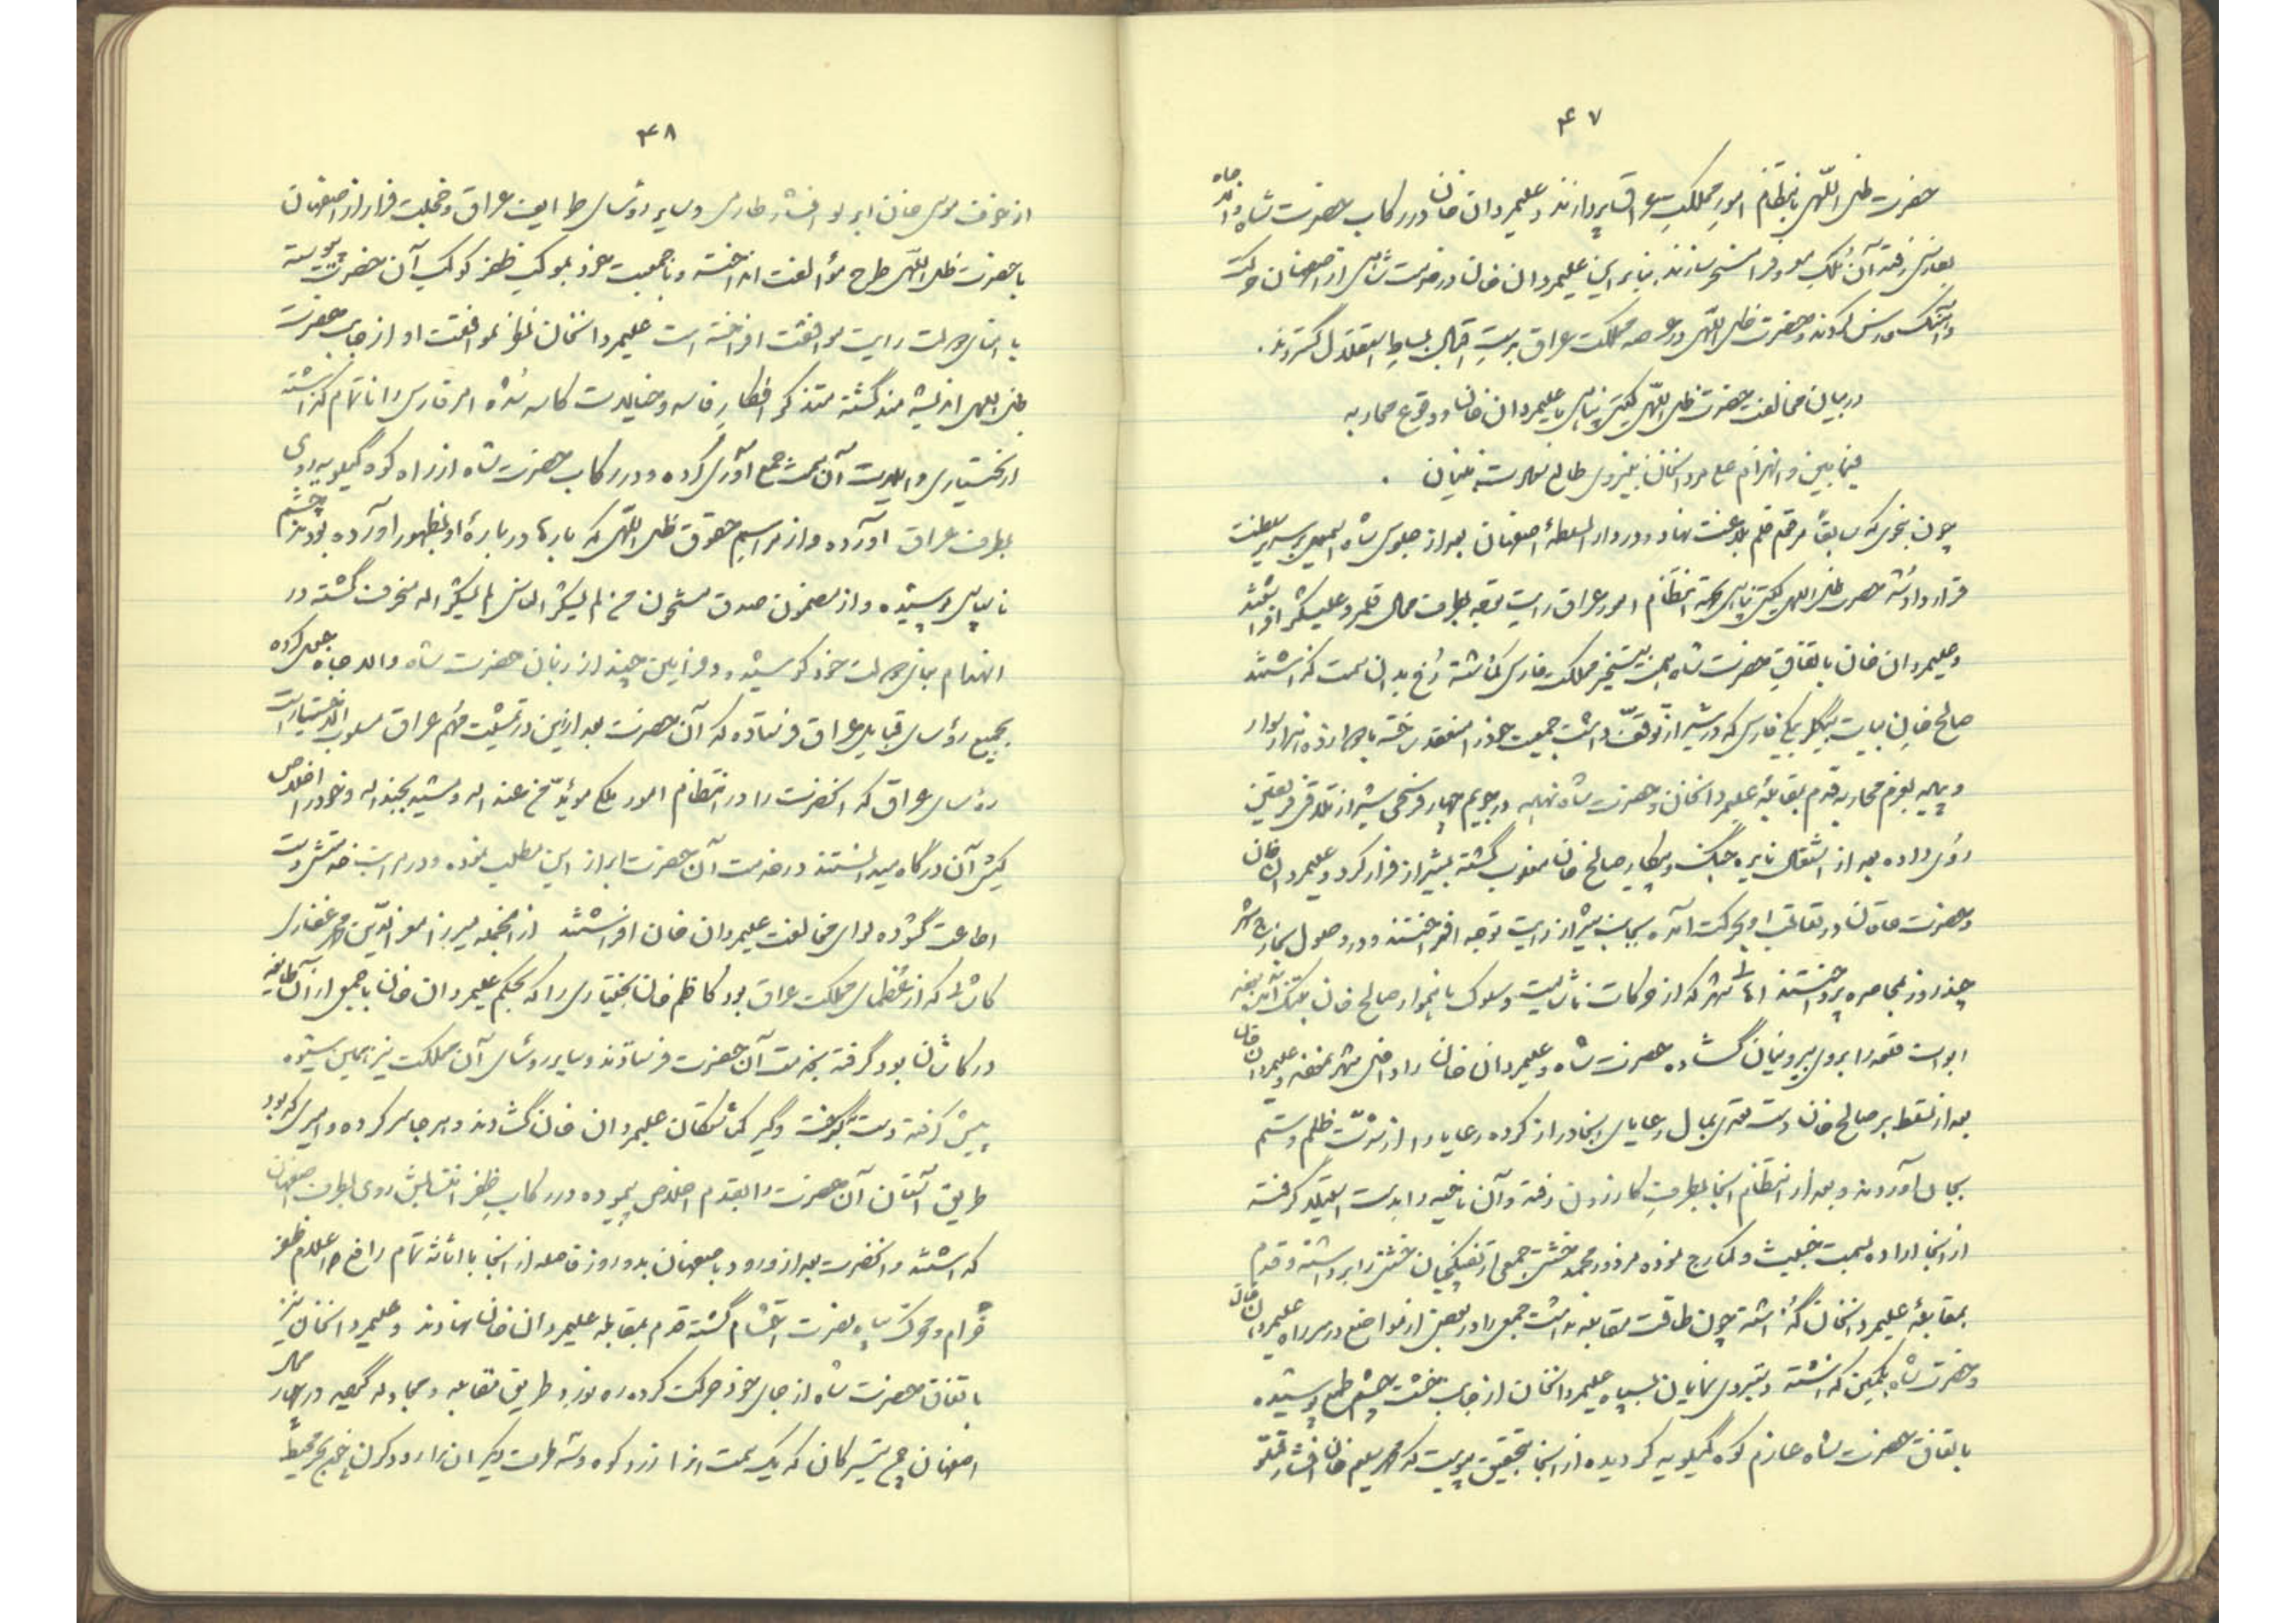 ۴۷
حضرت ظل اللّهی بانتظام امور مملکتِ عراق پردازند و علیمردان خان در رکاب حضرت شاه والد جاه
بفارس رفته آن مُلک را مسخر سازند بنابراین علیمردان خان در خدمت شاهی از اصفهان حرکت
و آهنگ فارس کردند و حضرت ظل اللّهی در عرصه مملکت عراق بدستِ اقبال بساطِ استقلال گستردند.
در بیان مخالفت حضرت ظل اللّهی گیتی پناهی با علیمردان خان و وقوع محاربه
فیمابین و انهزام علیمردانخان بنیروی طالع نصرت بنیان .
چون بنحوی که سابقاً مرقوم قلم بلاغت نهاد و در دار السلطنهٔ اصفهان بعد از جلوس شاه اسمعیل بسریر سلطنت
قرار داد شد حضرت ظل اللهی گیتی پناهی بجهة انتظام امور عراق رایت توجه بطرف محال قلمرو علیشکر افراشتند
و علیمردان خان باتفاقِ حضرت شاه بهمت تسخیر مملکت فارس گماشته رخ بدان سمت گذاشتند
صالح خان بیات بیگلربیگی فارس که در شیراز توقف داشت جمعیت خود را منعقد ساخته با چهارده هزار سوار
و پیاده بعزم محاربه قدم بمقابله علیمردانخان و حضرت شاه نهاده در چهار فرسخی شیراز تلاقی فریقین
روی داده بعد از اشتعال نایره جنگ و پیکار صالح خان مغلوب گشته بشیراز فرار کرد و علیمردان خان
و حضرت خاقان در تعاقب او بحرکت آمده بجانب شیراز رایت توجه افراختند و در وصول بخارج شهر
چند روز بمحاصره پرداختند اهالی شهر که از حرکات ناشایست و سلوک ناهموار صالح خان بتنگ آمده بودند
ابواب قلعه را بروی بیرونیان گشاده حضرت شاه و علیمردان خان را داخل شهر نمودند و علیمردان خان
بعد از تسلط بر صالح خان دست تعدی بمال رعایای آنجا دراز کرده رعایا را از شدّت ظلم و ستم
بجان آوردند و بعد از انتظام آنجا بطرفِ کازرون رفته و آن ناحیه را بدست استیلا گرفته
از آنجا اراده سمت خشت و کمارج نموده محمد خشتی جمعی از تفنگچیان خشتی را برداشته و قدم
بمقابلهٔ علیمردانخان گذاشته چون طاقت مقابله نداشت جمعی را در بعضی از مواضع در سر راه علیمردان خان
و حضرت شاه بکمین گذاشته و بنیروی نمایان بسپاه علیمردانخان از جانب خشت چشم طمع پوشیده
باتفاق حضرت شاه عازم کوه گیلویه گردیده از آنجا بتحقیق پیوست که محمد سلیم خان افشار قرقلو
۴۸
از خوف موسی خان ایرلوی افشار طارمی و سایر رؤسای طوایف عراق و خجلت فرار از اصفهان
با حضرت ظل اللّهی طرح مؤالفت انداخته و با جمعیت خود بموکب ظفر کوکب آن حضرت پیوسته
با اتباع دولت رایت موافقت افراخته است علیمردانخان نظر بموافقت او از جانب حضرت
ظل اللهی اندیشه مند گشته متذکر افکارِ فاسد و خیالات کاسد شده امر فارس را ناتمام گذاشته
از بختیاری و الوار آن سمت جمع آوری کرده و در رکاب حضرت شاه از راه کوه گیلویه روی
بطرف عراق آورده و از مراسم حقوق ظل اللّهی که بارها در بارهٔ او بظهور آورده بودند چشم
ناسپاسی پوشیده و از مضمون صدق مشحون من لم یشکر الناس لم یشکر الله منحرف گشته در
انهدام بنای دولت خود کوشیده و فرامین چند از زبان حضرت شاه والد جاه جعل کرده
بجمیع رؤسای قبایل عراق فرستاده که آن حضرت بعد از این در تمشیت مهم عراق مسلوب الاختیار است
رؤسای عراق که آنحضرت را در انتظام امور ملک مؤیّد من عند الله و مشید بجند الله و خود را اخلاص
کیش آن درگاه میدانستند در خدمت آن حضرت ابراز این مطلب نموده و در مراتب خدمتش دست
اطاعت گشوده لوای مخالفت علیمردان خان افراشتند از آنجمله میرزا معزالدّین محمد غفاری
کاشی که از عظمای مملکت عراق بود کاظم خان بختیاری را که بحکم علیمردان خان با جمعی از آن طایفه
در کاشان بود گرفته بخدمت آن حضرت فرستادند و سایر رؤسای آن مملکت نیز همین شیوه
پیش گرفته دست بگرفت و گیر گماشتگان علیمردان خان گشادند و هر جا سر کرده و امیری که بود
طریق آستان آن حضرت را بقدم اخلاص پیموده در رکابِ ظفر انتسابش روی بطرف اصفهان
گذاشتند و آنحضرت بعد از ورود باصفهان بدو روز فاصله از آنجا با اثاثهٔ تمام رافع اعلام ظفر
فرجام و محرک سپاه نصرت احتشام گشته قدم بمقابله علیمردان خان نهادند و علیمردانخان نیز
باتفاق حضرت شاه از جای خود حرکت کرده ره نورد طریق مقابله و مجادله گردیده در محال چهار
اصفهان من تیرگان که یک سمت آنرا زرد کوه و سه طرف دیگر آن را رود کرن چون بحر محیط